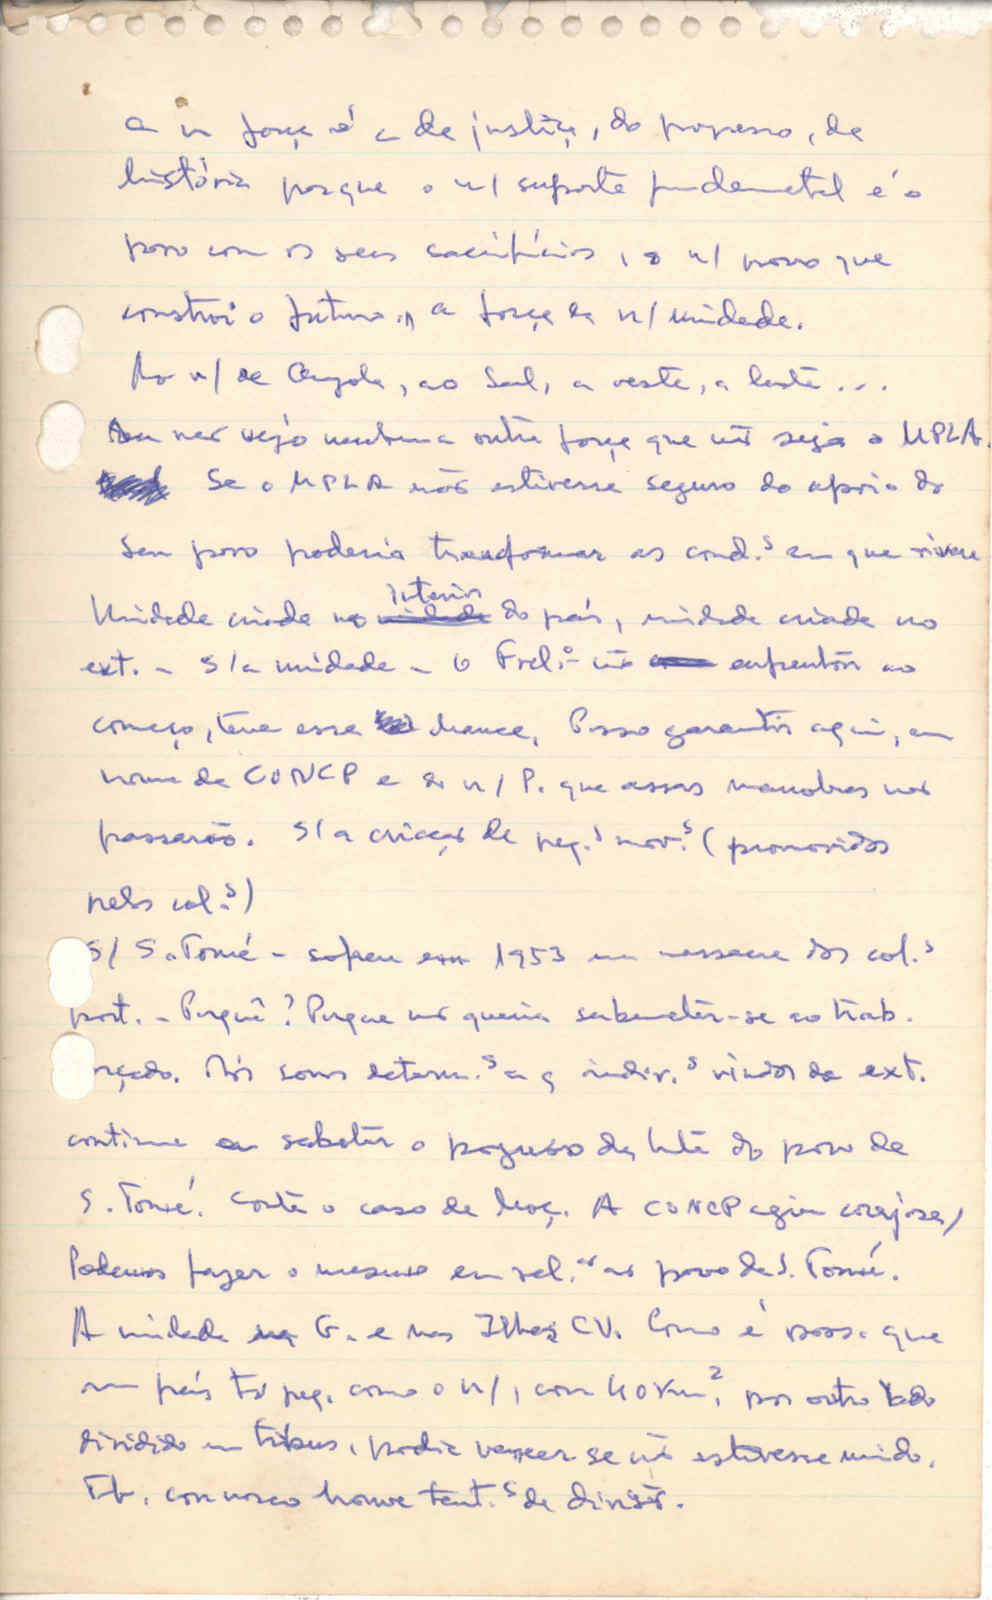 a n força é a da justiça, do progresso, da
história porque o n/ suporte fundamental é o
povo com os seus sacrifícios, o n/ povo que
constroi o futuro, a força da n/ unidade.
Ao n/ de Angola, ao Sul, a oeste, a leste...
nao vejo nenhuma outra força que não seja o MPLA.
Se o MPLA não estivesse seguro do apoio do
seu povo poderia transformar as cond.s em que vivem
Unidade criada no interior do país, unidade criada no
ext. - S/ a unidade - O Frel.o não enfrentou ao
começo, teve essa chance. Posso garantir aqui, em
nome da CONCP e do n/ P. que essas manobras não
passarão. S/ a criação de peq.s mov.s (promovidos
pelos col.s)
S/ S. Tomé - sofreu em 1953 um massacre dos col.s
port. - Porquê? Porque não queria submeter-se ao trab.
rçado. Nós somos determ.s a q indiv.s vindos do ext.
continue a sabotar o progresso da luta do povo de
S. Tomé. Conta o caso de Moç. A CONCP agiu corajosa/
Podemos fazer o mesmo em rel.ão ao povo de S. Tomé.
A unidade na G. e nas Ilhas CV. Como é poss. que
um país tã peq. como o n/, com 40 Km2, por outro lado
dividido em tribus, podia vencer se não estivesse unido.
Tb. connosco houve tent.s de divisão.